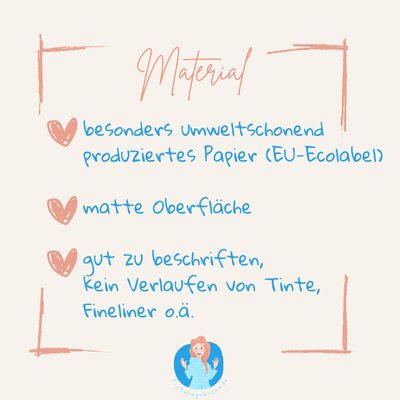 Material
besonders umweltschonend
produziertes Papier (EU-Ecolabel)
matte Oberfläche
gut zu beschriften,
kein Verlaufen von Tinte,
Fineliner o.ä.